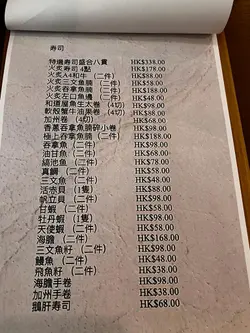 寿司
特選寿司盛合八貫 HK$338.00
火炙寿司 4點 HK$178.00
火炙A4和牛 (二件) HK$88.00
火炙三文魚腩 (二件) HK$58.00
火炙吞拿魚腩 (二件) HK$188.00
火炙左口魚邊 (二件) HK$48.00
和道屋魚生太卷 (4切) HK$98.00
軟殼蟹牛油果卷 (4切) HK$98.00
加州卷 (4切) HK$68.00
香蔥吞拿魚腩碎小卷 HK$98.00
極上吞拿魚腩 (二件) HK$188.00
吞拿魚 (二件) HK$98.00
油甘魚 (二件) HK$68.00
縞池魚 (二件) HK$78.00
真鯛 (二件) HK$58.00
三文魚 (二件) HK$48.00
活壳貝 (1隻) HK$88.00
帆立貝 (二件) HK$58.00
甘蝦 (二件) HK$58.00
牡丹蝦 (1隻) HK$98.00
天使蝦 (二件) HK$58.00
海膽 (二件) HK$168.00
三文魚籽 (二件) HK$98.00
鰻魚 (二件) HK$48.00
飛魚籽 (二件) HK$38.00
海膽手卷 HK$98.00
加州手卷 HK$38.00
鵝肝寿司 HK$68.00